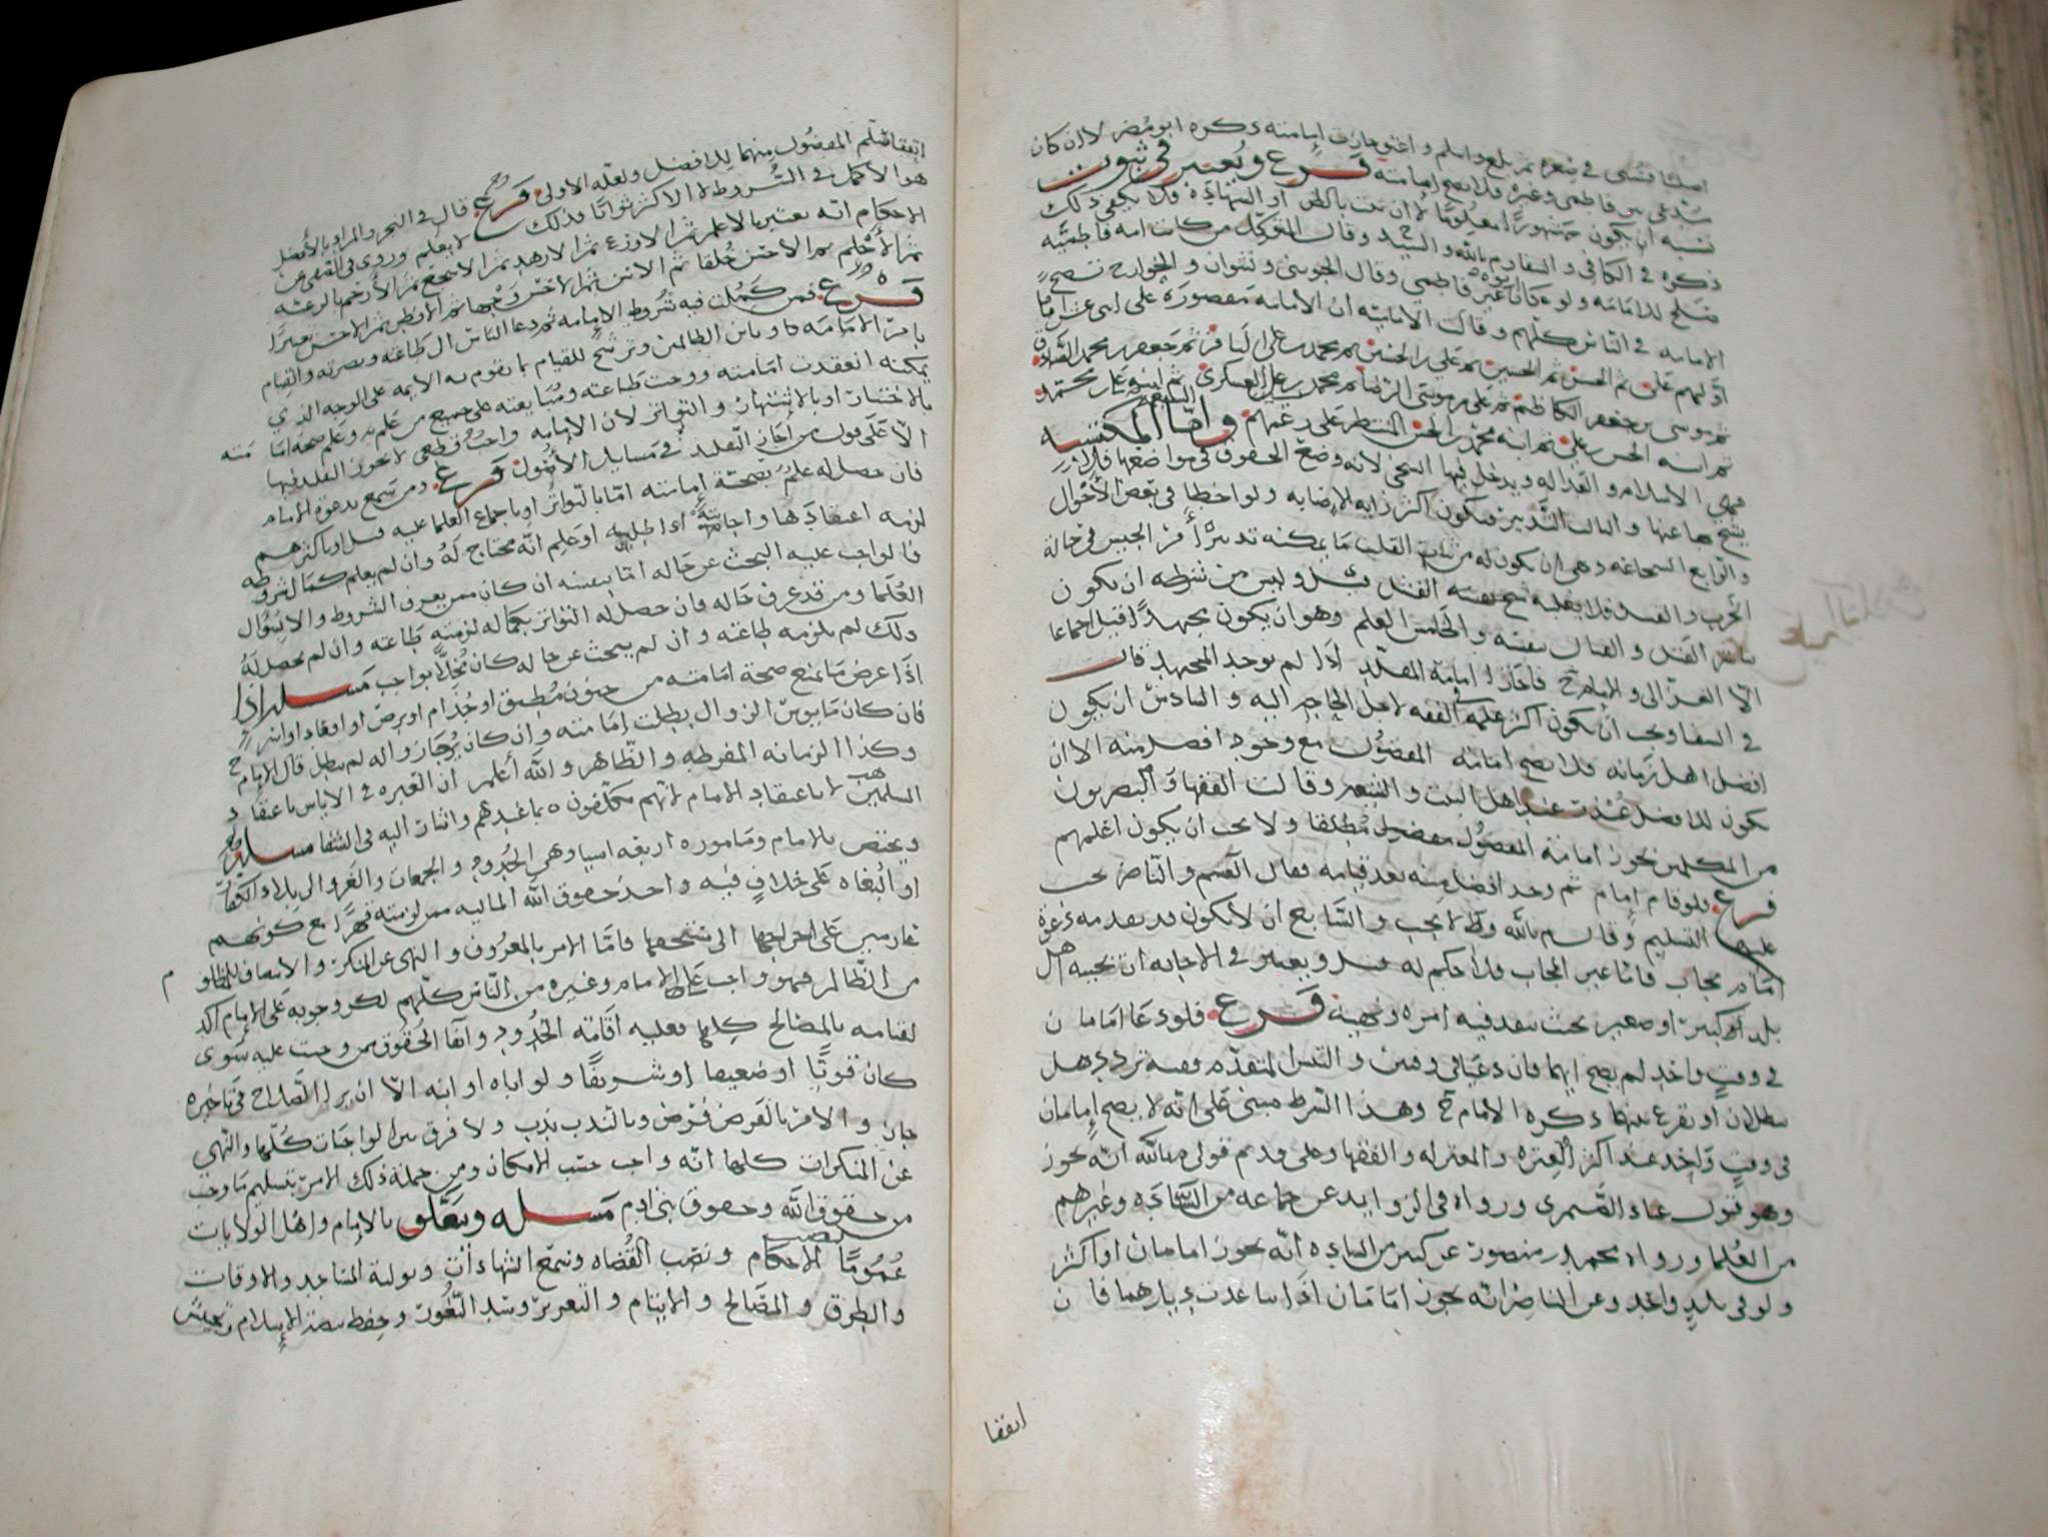 فرع ويعتبر في ثبوت
نسبه ان يكون مشهورا معلوما لا ان ثبت بالظن او الشهادة فلا يكفي ذلك
ذكره في الكافي وقال المتوكل من كانت امه فاطمية
صلح للامامة ولو كان ابوه غير فاطمي وقال الجويني ونشوان والخوارج تصح
الامامة في الناس كلهم وقالت الامامية ان الامامة مقصورة على اثني عشر اماما
اولهم علي ثم الحسن ثم الحسين ثم علي بن الحسين ثم محمد بن علي الباقر ثم جعفر بن محمد الصادق
ثم موسى بن جعفر الكاظم ثم علي بن موسى الرضا ثم محمد بن علي ثم ابنه علي بن محمد
ثم ابنه الحسن بن علي ثم ابنه محمد بن الحسن المنتظر على زعمهم واما المكتسبة
فهي الاسلام والعدالة ويدخل فيها السخى لانه وضع الحقوق في مواضعها فلا
يشح بها عنها والثالث التدبير فيكون اكثر رايه الاصابه ولو اخطا في بعض الاحوال
والرابع الشجاعة وهي ان يكون له من ثبات القلب ما يمكنه تدبير امر الجيش في حالة
الحرب والفشل فلا يغلبه بنفسه القتل وليس من شرطه ان يكون
يباشر القتل والقتال بنفسه والخامس العلم وهو ان يكون مجتهدا قيل اجماعا
الا الغزالي والامام ح فاجازا امامة المقلد اذا لم يوجد المجتهد قال
ويجب ان يكون اكثر علمه في الفقه لاجل الحاجة اليه والسادس ان يكون
افضل اهل زمانه فلا يصح امامة المفضول مع وجود افضل منه الا ان
يكون للافضل عذر عند اهل البيت والشيعة وقالت الفقها والبصريون
من المتكلمين تجوز امامة المفضول مطلقا ولا يجب ان يكون اعلمهم
فرع فلو قام امام ثم وجد افضل منه بعد قيامه فقال القسم والناصر يجب
عليه التسليم وقال لا يجب والسابع ان لا يكون قد تقدمه دعوة
امام مجاب فاما غير المجاب فلا حكم له قيل ويعتبر في الاجابة ان تجيبه اهل
بلد كبير او صغير بحيث ينفذ فيه امره ونهيه فرع فلو دعا امامان
في وقت واحد لم يصح ايهما فان دعيا في وقتين والتبس المتقدم ففيه تردد هل
يبطلان او يقرع بينهما ذكره الامام ح وهذا الشرط مبني على انه لا يصح امامان
في وقت واحد عند اكثر العترة والمعتزله والفقها وعلى قديم قولي م بالله انه يجوز
وهو قول عباد الصيمري ورواه في الزوايد عن جماعة من السادة وغيرهم
من العلما ورواه محمد بن منصور عن كثير من السادة انه يجوز امامان او اكثر
ولو في بلد واحد وعن الناصر انه يجوز امامان اذا تباعدت ديارهما فان
اتفقا
اتفقا سلم المفضول منهما للافضل ولعله الاولى فرع قال في البحر والمراد بالافضل
هو الاكمل في الشروط لا الاكثر ثوابا فذلك لا يعلم وروي في
الاحكام انه يعتبر بالاعلم ثم الاورع ثم الازهد ثم الاشجع ثم الارحم بالرعية
ثم الاحلم ثم الاحسن خلقا ثم الاسن ثم الاحسن وجها
فرع فمن كملت فيه شروط الامامة ثم دعا الناس الى طاعته ونصرته والقيام
بامر الامامة وباين الظالمين وترشح للقيام بما تقوم به الايمة على الوجه الذي
يمكنه انعقدت امامته ووجبت طاعته ومبايعته على جميع من علم به وعلم صحة امامته
بالاختبار او بالاشتهار والتواتر لان الامامة واجب قطعي لا يجوز التقليد فيها
الا على قول من اجاز التقليد في مسايل الاصول فرع ومن سمع بدعوة الامام
فان حصل له علم بصحة امامته اما بالتواتر او باجماع العلما عليه قيل او باكثرهم
لزمه اعتقادها واجابته اذا طلبه او علم انه محتاج له وان لم يعلم كمال شروطه
فالواجب عليه البحث عن حاله اما بنفسه ان كان ممن يعرف الشروط والا بسوال
العلما ومن قد عرف حاله فان حصل له التواتر بكماله لزمته طاعته وان لم يحصل له
ذلك لم يلزمه طاعته وان لم يبحث عن حاله كان مخلا بواجب مسله اذا
اذا عرض ما يمنع صحة امامته من جنون مطبق او جذام او برص او اقعاد
فان كان مايوس الزوال بطلت امامته وان كان يرجا زواله لم يبطل قال الامام ح
وكذا الزمانه المفرطه والظاهر والله اعلم ان العبره في الاياس باعتقاد
المسلمين لا باعتقاد الامام لانهم مكلفون بما عندهم واشار اليه في الشفا مسله
ويختص بالامام ومامورة اربعة اشيا وهي الحدود والجمعات والغزو الى بلاد الكفار
او البغاه على خلاف فيه واخذ حقوق الله الماليه ممن لزمته قهرا مع كونهم
عازمين على اخراجها الى مستحقها فاما الامر بالمعروف والنهي عن المنكر والانصاف للمظلوم
من الظالم فهو واجب على الامام وغيره من الناس كلهم لكن وجوبه على الامام اكد
لقيامه بالمصالح كلها فعليه اقامة الحدود وانفا الحقوق ممن وجبت عليه سوى
كان قويا او ضعيفا او شريفا ولو اباه او ابنه الا ان يرا الصلاح في تاخيره
جاز والامر بالفرض فرض وبالندب ندب ولا فرق بين الواجبات كلها والنهي
عن المنكرات كلها انه واجب حسب الامكان ومن جملة ذلك الامر بتسليم ما وجب
من حقوق الله وحقوق بني ادم مسله ويتعلق بالامام واهل الولايات
عموما الاحكام ونصب القضاه وسمع الشهادات وتولية المساجد والاوقاف
والطرق والمصالح والايتام والتعزير وسد الثغور وحفظ بيضة الاسلام